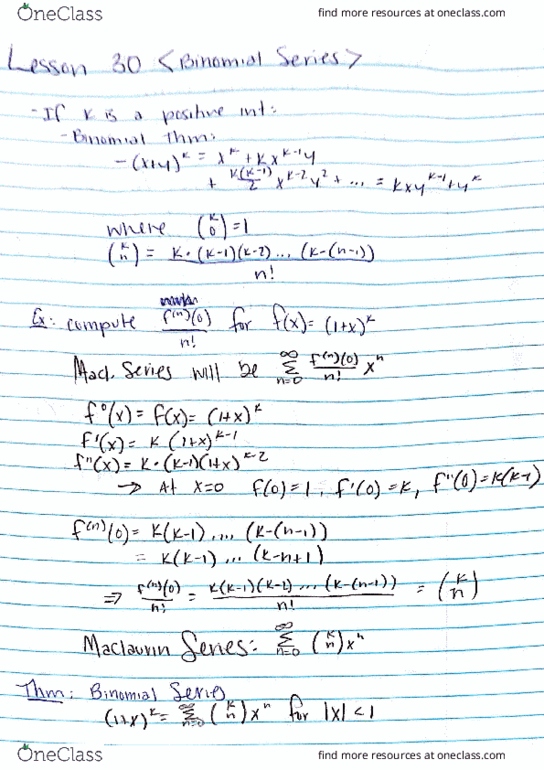 OneClass find more resources at oneclass.com
Lesson 30 <Binomial Series>
- If k is a positive int:
- Binomial Thm:
- (x+y)^k = x^k + k x^(k-1) y
+ k(k-1)/2 x^(k-2) y^2 + ... = kxy^(k-1) + y^k
where (k 0) = 1
(k n) = k·(k-1)(k-2)... (k-(n-1)) / n!
Ex: compute f^(n)(0)/n! for f(x) = (1+x)^k
Macl. Series will be ∞ Σ n=0 f^(n)(0)/n! x^n
f°(x) = f(x) = (1+x)^k
f'(x) = k (1+x)^(k-1)
f''(x) = k·(k-1)(1+x)^(k-2)
→ At x=0 f(0)=1, f'(0)=k, f''(0)=k(k-1)
f^(n)(0) = k(k-1) .... (k-(n-1))
= k(k-1) ... (k-n+1)
⇒ f^(n)(0)/n! = k(k-1)(k-2) ... (k-(n-1)) / n! = (k n)
Maclaurin Series: ∞ Σ n=0 (k n) x^n
Thm: Binomial Series
(1+x)^k = ∞ Σ n=0 (k n) x^n for |x| < 1
OneClass find more resources at oneclass.com